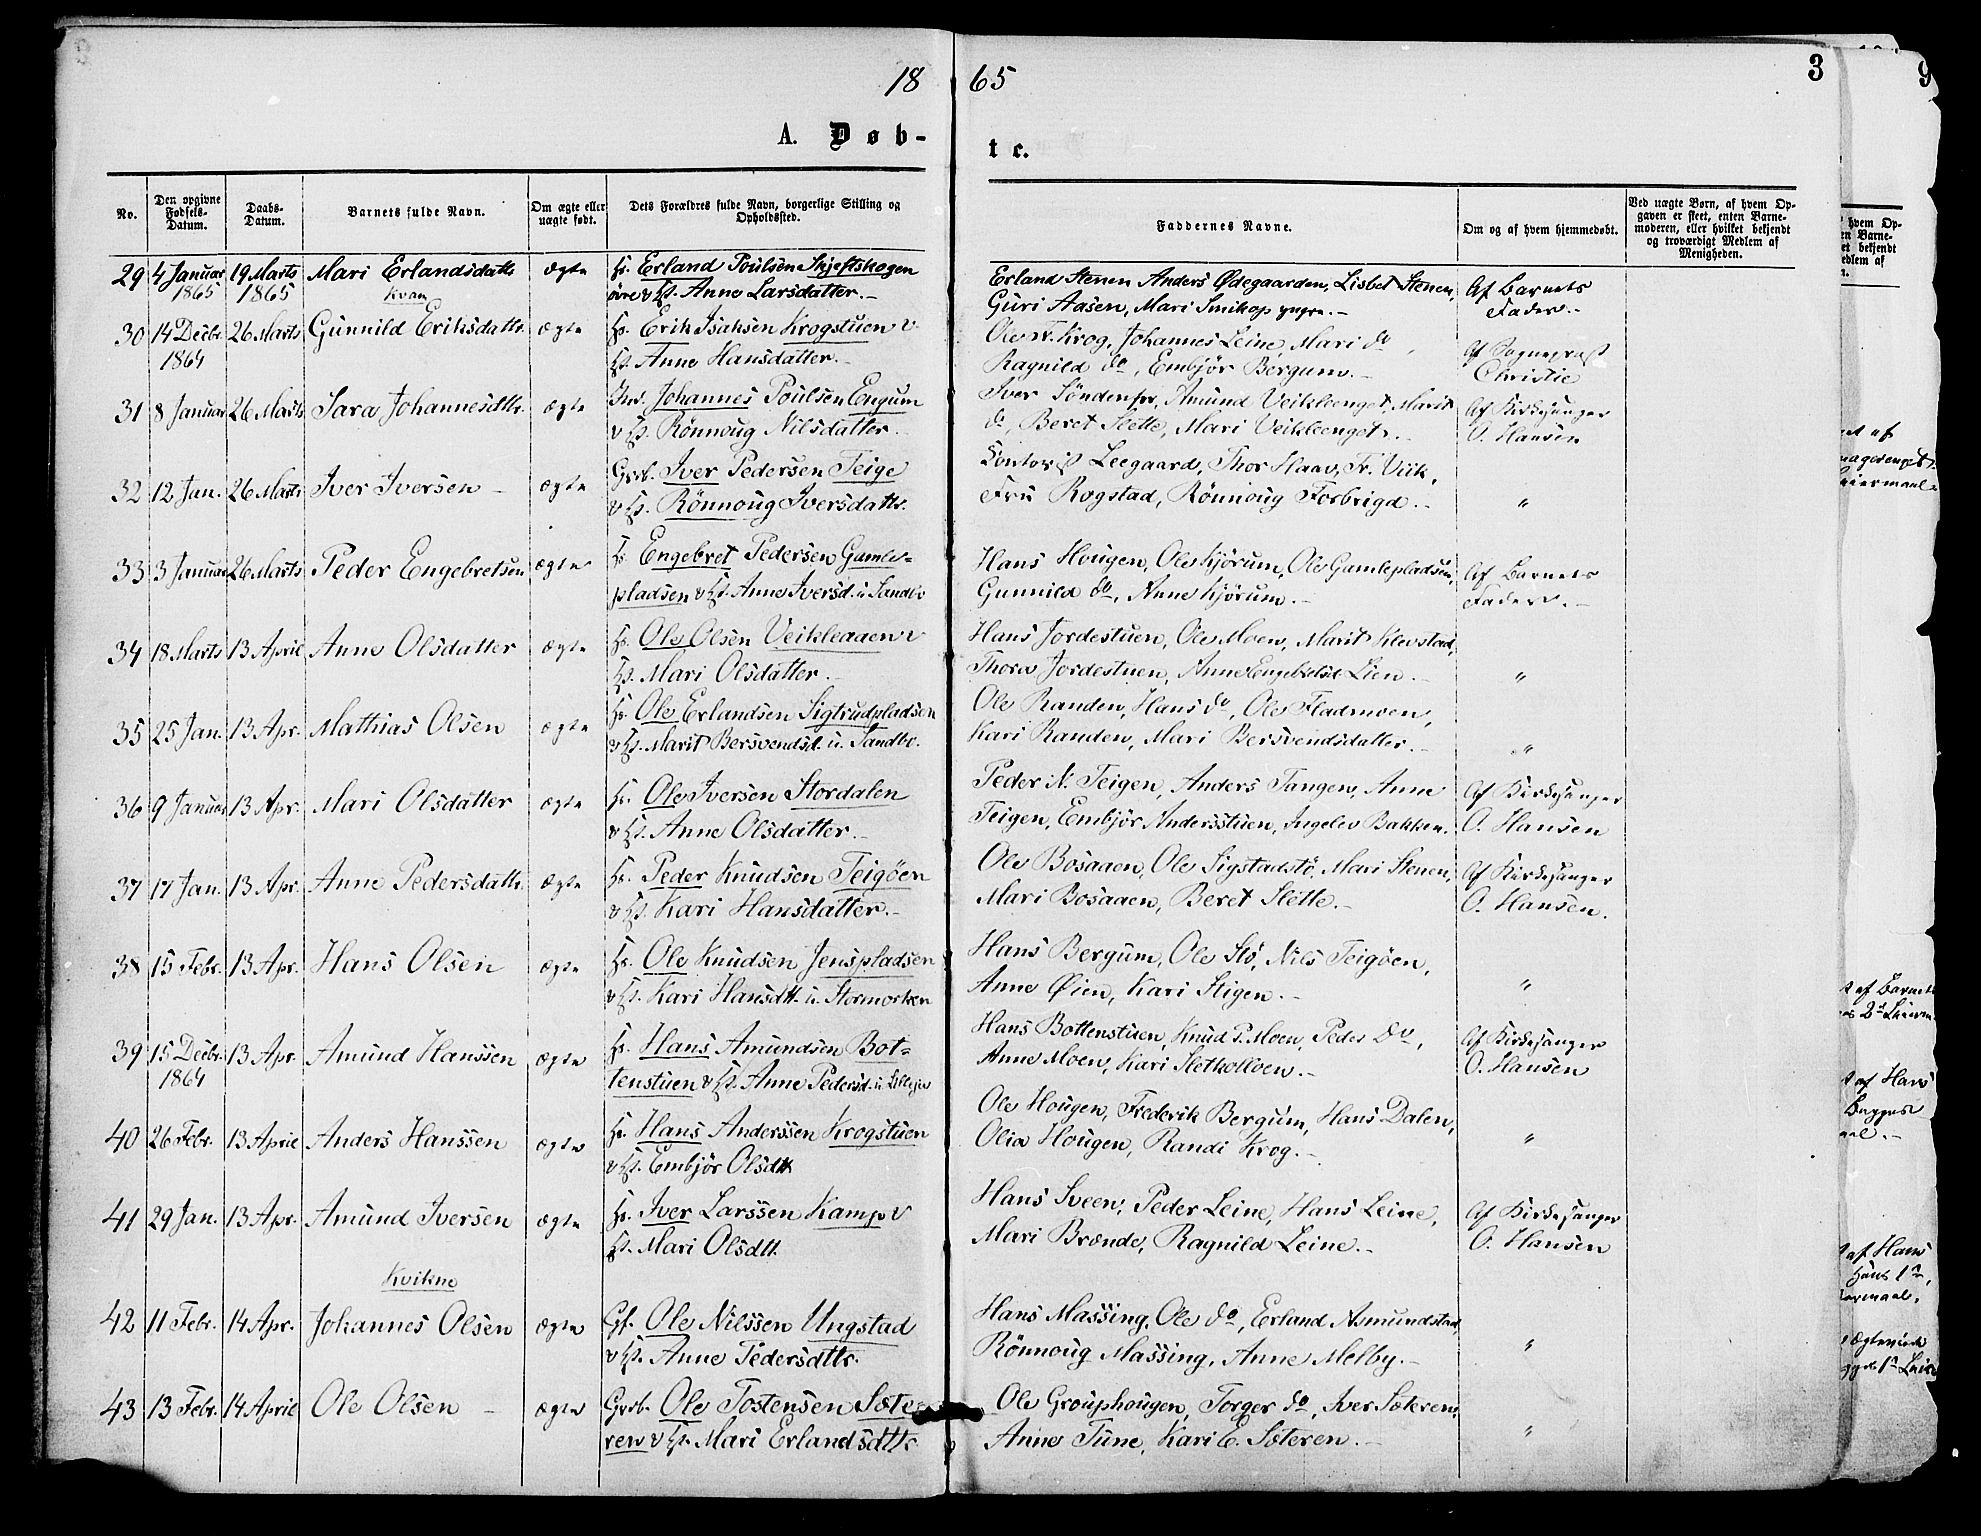 18 65
3
9
A. Døb-
te.
No.
Den opgivne Fødsels-Datum.
Daabs-Datum.
Barnets fulde Navn.
Om ægte eller uægte født.
Dets Forældres fulde Navn, borgerlige Stilling og Opholdssted.
Faddernes Navne.
Om og af hvem hjemmedøbt.
Ved uægte Børn, af hvem Op-
gaven er skeet, enten Barne-
moderen, eller hvilket bekjendt
og troværdigt Medlem af
Menigheden.
29 4 Januar 19 Marts Mari Erlandsdatt. ægte Erland Poulsen Skjeftskogen Erland Stenen Anders Ødegaarden, Lisbet Stenen, Af Barnets
1865 1865 Kvam øvre v Anne Larsdatter.- Guri Aasen, Mari yngre.- Fader.-
30 14 Decbr. 26 Marts Gunnild Eriksdattr. ægte Erik Isaksen Krogstuen v Ole Krog, Johannes Leine, Mari do, Af Sognepræst
1864 Anne Hansdatter.- Ragnild do, Embjör Bergum.- Christie
31 8 Januar 26 Marts Sara Johannesdtr. ægte Johannes Poulsen Engum Iver, Amund Veikleenget, Marit Af Kirkesanger
v Rönnoug Nilsdatter. do, Beret Slette, Mari Veikleenget.- O. Hansen
32 12 Jan. 26 Marts Iver Iversen - ægte Grb. Iver Pedersen Teige Leegaard, Thor Haav, Fr. Veik,
v Rönnoug Iversdattr. Fru Rogstad, Rönnoug Forbrigd.- "
33 3 Januar 26 Marts Peder Engebretsen ægte Engebret Pedersen Gamle= Hans Hougen, Ole Kjörum, Ole Gamlepladsen, Af Barnets
pladsen v Anne Iversd. u. Sandbo Gunnild do, Anne Kjörum.- Fader.-
34 18 Marts 13 April Anne Olsdatter ægte Ole Olsen Veikleaaen v Hans Jordestuen, Ole Moen, Marit Klevstad,
Mari Olsdatter.- Thora Jordestuen, Anne Engebretsd. Lien.- "
35 25 Jan. 13 Apr. Mathias Olsen ægte Ole Erlandsen Sigtrudpladsen Ole Randen, Hans do, Ole Fladmoen,
v Marit Bersvendsd. u. Sandbo. Kari Randen, Mari Bersvendsdatter.- "
36 9 Januar 13 Apr. Mari Olsdatter ægte Ole Iversen Stordalen Peder N. Teigen, Anders Tangen, Anne Af Kirkesanger
v Anne Olsdatter.- Teigen, Embjör Andersstuen, Ingelev Bakken. O. Hansen
37 17 Jan. 13 Apr. Anne Pedersdattr. ægte Peder Knudsen Teigöen Ole Bosaaen, Ole Sigstadstö, Mari Stenen, Af Kirkesanger
v Kari Hansdatter.- Mari Bosaaen, Beret Slette.- O. Hansen.
38 15 Febr. 13 Apr. Hans Olsen ægte Ole Knudsen Jenspladsen Hans Bergum, Ole Stö, Nils Teigöen,
v Kari Hansdtt. u. Stormorken Anne Øien, Kari Stigen.- "
39 15 Decbr. 13 Apr. Amund Hanssen ægte Hans Amundsen Bot= Hans Bottenstuen, Knud P. Moen, Peder do, Af Kirkesanger
1864 tenstuen v Anne Pedersd. Anne Moen, Kari Sletkolloen.- O. Hansen
40 26 Febr. 13 April Anders Hanssen ægte Hans Anderssen Krogstuen Ole Hougen, Frederik Bergum, Hans Dalen,
v Embjör Olsdtt. Olia Hougen, Randi Krog.- "
41 29 Jan. 13 Apr. Amund Iversen ægte Iver Larssen Kamp v Hans Sveen, Peder Leine, Hans Leine, Af Kirkesanger
Mari Olsdtt. Mari Brænde, Ragnild Leine.- O. Hansen
Kvikne
42 11 Febr. 14 Apr. Johannes Olsen ægte Gf. Ole Nilssen Ungstad Hans Massing, Ole do, Erland Asmundstad,
v Anne Pedersdttr. Rönnoug Massing, Anne Melby.- "
43 13 Febr. 14 April Ole Olsen - ægte Grb. Ole Tostensen Sæte= Ole Grouphougen, Torger do, Iver Sæteren,
ren v Mari Erlandsdttr Anne Tune, Kari E. Sæteren.- "